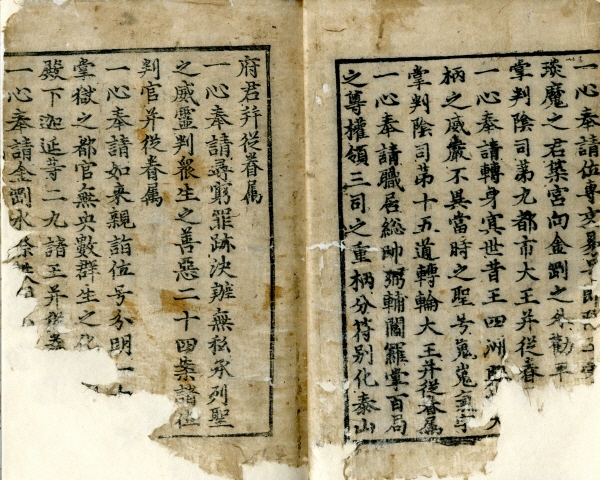 一心奉請位專
琰魔之君案宮向金剛之外勸平
掌判陰司第九都市大王并從眷
一心奉請轉身冥世昔王四洲
柄之威嚴不異當時之聖号嵬嵬
掌判陰司第十五道轉輪大王并從眷属
一心奉請職居総帥弼輔閻羅掌百局
之尊權領三司之重柄分符别化泰山
府君并從眷属
一心奉請尋窮罪跡決辦無私承列聖
之威靈判衆生之善惡二十四案諸位
判官并從眷属
一心奉請如来親詣位号分明一十
掌獄之都官無央數群生之化
殿下迦延等二九諸王并從眷
一心奉請金剛水